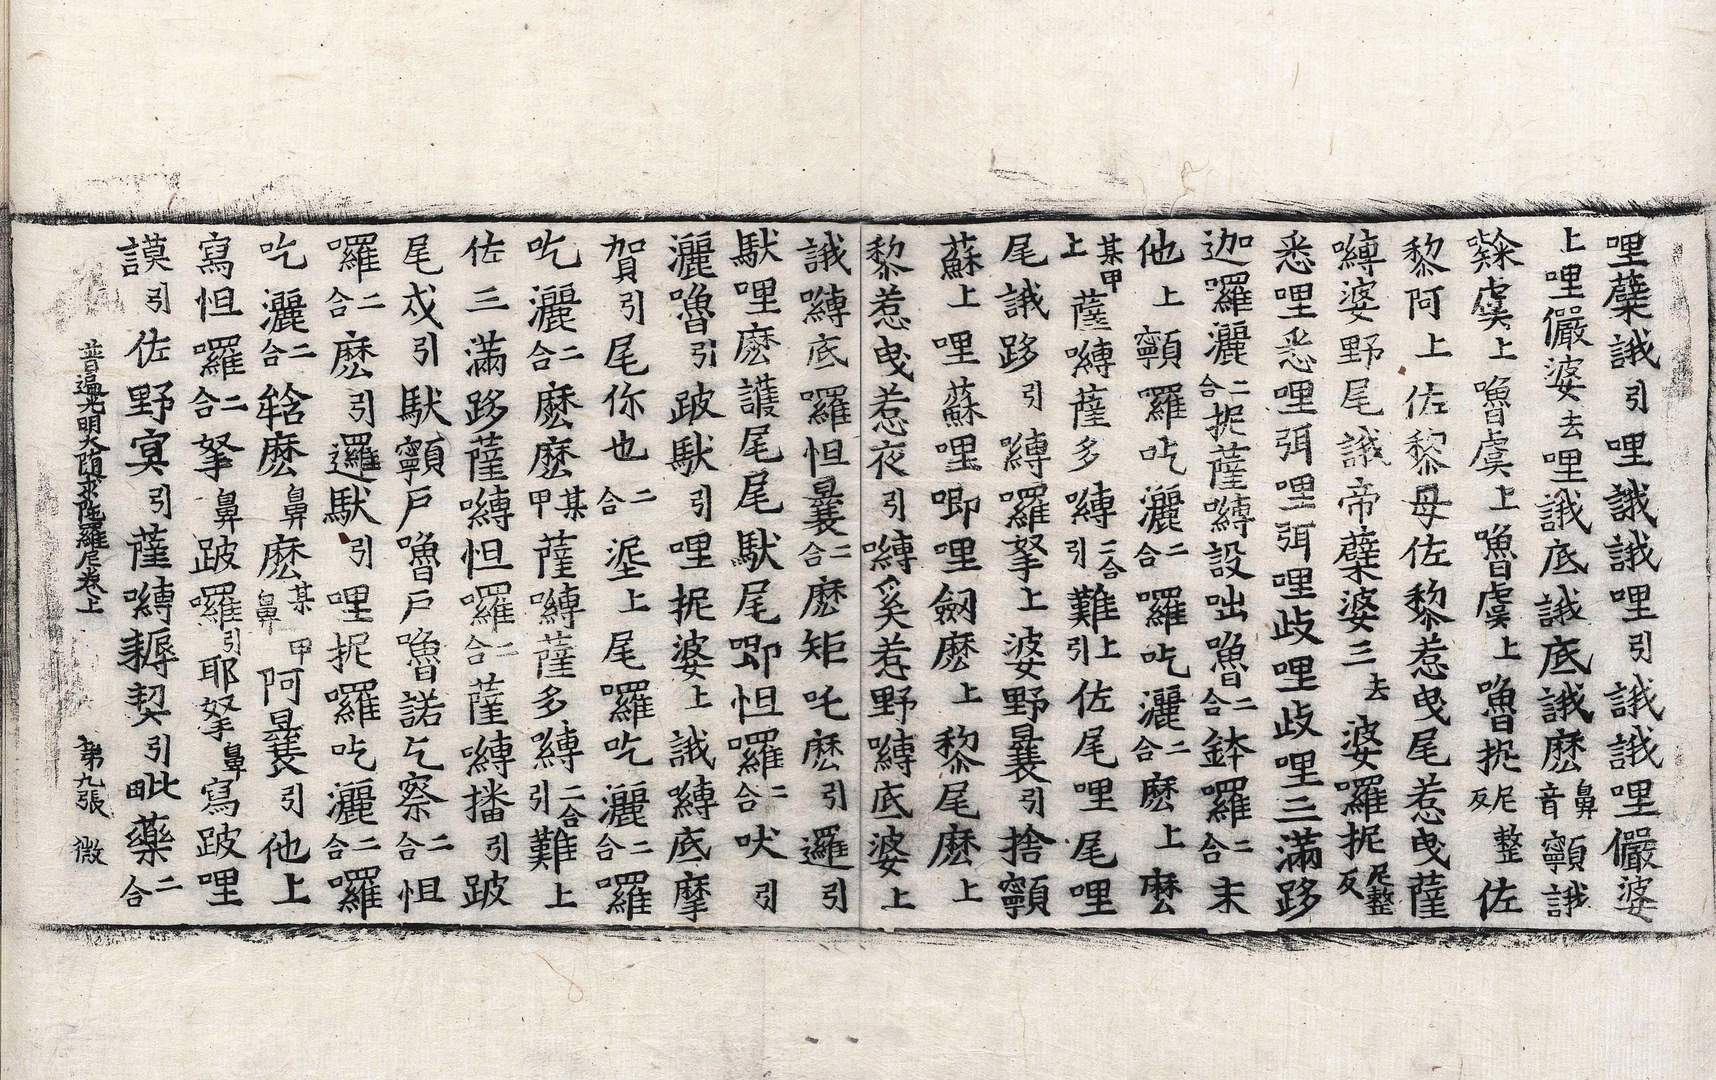 哩蘖誐引哩誐誐哩引誐誐哩儼婆
上哩儼婆去哩誐底誐底誐麽鼻音顐誐
㘑虞上嚕虞上嚕虞上嚕抳尼整反佐
黎阿上佐黎母佐黎惹曵尾惹曵薩
嚩婆野尾誐帝蘖婆三去婆羅抳尼整反
悉哩悉哩弭哩弭哩歧哩歧哩三滿跢
迦囉灑二合抳薩嚩設咄嚕二合鉢囉二合末
他上顐囉吃灑二合囉吃灑二合麽上麽
某甲上薩嚩薩多嚩二合引難上引佐尾哩尾哩
尾誐跢引嚩囉拏上婆野曩引捨顐
蘇上哩蘇哩唧哩劔麽上黎尾麽上
黎惹曵惹夜引嚩奚惹野嚩底婆上
誐嚩底囉怛曩二合麽矩吒麽引邏引
馱哩麽護尾尾馱尾唧怛囉二合吠引
灑嚕引跛馱引哩抳婆上誐嚩底摩
賀引尾你也二合埿上尾囉吃灑二合囉
吃灑二合麽麽某甲薩嚩薩多嚩二合引難上
佐三滿跢薩嚩怛囉二合薩嚩播引跛
尾戍引馱顐戶嚕戶嚕諾乞察二合怛
囉二合麽引邏馱引哩抳囉吃灑二合囉
吃灑二合𤚥麽鼻麽鼻某甲阿曩引他上
寫怛囉二合拏鼻跛囉引耶拏鼻寫跛哩
謨引佐野寞引薩嚩耨契引毗藥二合
普遍光明大隨求陀羅尼卷上 第九張 微